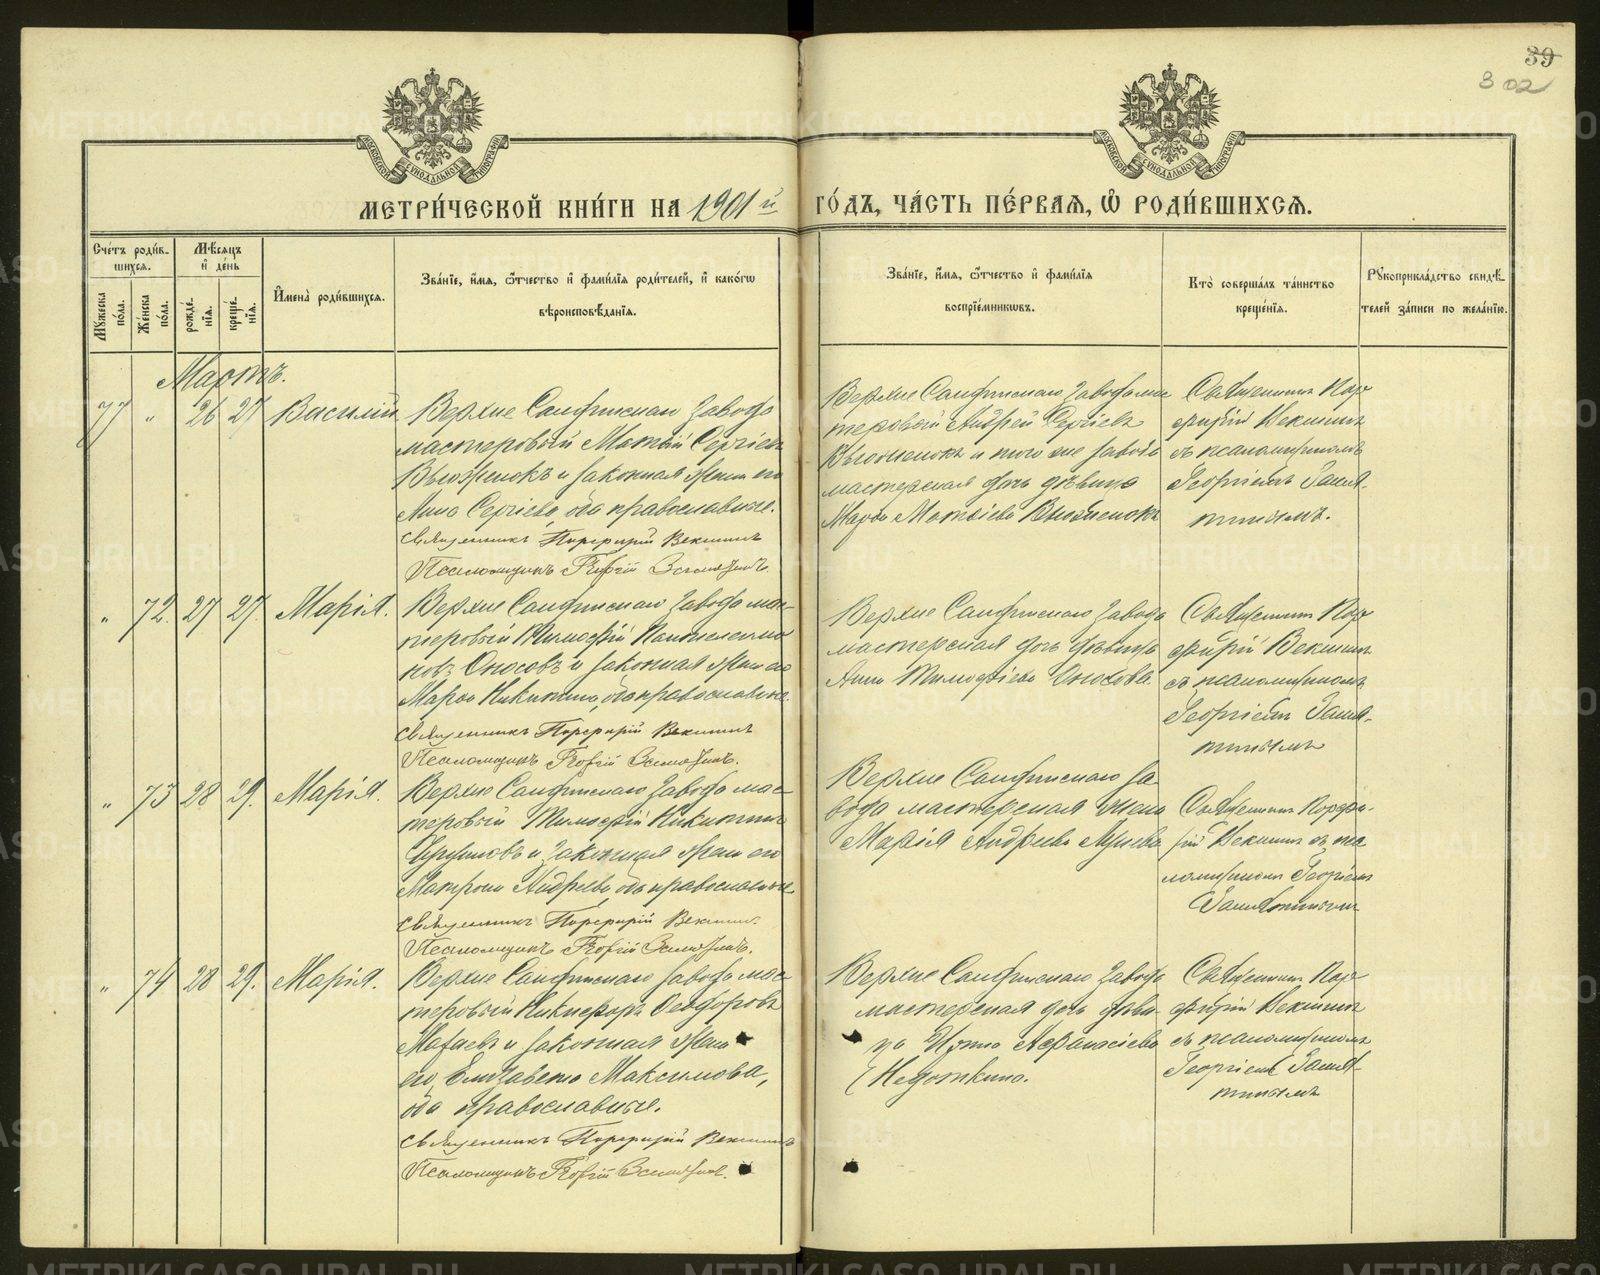 39
302
МОСКОВСКОЙ СѴНОДАЛЬНОЙ ТИПОГРАФІИ
МОСКОВСКОЙ СѴНОДАЛЬНОЙ ТИПОГРАФІИ
МЕТРИ́ЧЕСКОЙ КНИ́ГИ НА 1901й ГО́ДЪ, ЧА́СТЬ ПЕ́РВАѦ, Ѡ҆ РОДИ́ВШИХСѦ.
Сче́тъ роди́в-
шихсѧ.
Мꙋжеска по́ла.
Же́нска по́ла.
Мѣ́сѧцъ
и҆ де́нь
рожде́-
нїѧ.
креще́-
нїѧ.
И҆мена̀ роди́вшихсѧ.
Зва́нїе, и҆́мѧ, ѻ҆́тчество и҆ фами́лїѧ роди́телей, и҆ како́гѡ
вѣроисповѣ́данїѧ.
Зва́нїе, и҆́мѧ, ѻ҆́тчество и҆ фами́лїѧ
воспрїе́мникѡвъ.
Кто̀ соверша́лъ та́инство
креще́нїѧ.
Рꙋкоприкла́дство свидѣ́-
телей за́писи по жела́нїю.
Мартъ.
77 " 26 27 Василій
Верхне Салдинскаго Завода
мастеровый Матвѣй Сергіевъ
и законная жена его
Анна Сергіева, оба православные.
Священникъ Порфирій Векшинъ
Псаломщикъ Георгій
Верхне Салдинскаго Завода мас
теровый Андрей Сергіевъ
и того же завода
мастерская дочь дѣвица
Матвѣева
Священникъ Пор
фирій Векшинъ
съ псаломщикомъ
Георгіемъ
" 72. 27 27. Марія.
Верхне Салдинскаго Завода мас-
теровый Тимофей Пантелеимо
новъ Оносовъ и законная жена его
Марѳа Никитина, оба православные.
Священникъ Порфирій Векшинъ
Псаломщикъ Георгій
Верхне Салдинскаго Завода
мастерская дочь дѣвица
Анна Тимофеева Оносова
Священникъ Пор
фирій Векшинъ
съ псаломщикомъ
Георгіемъ
" 73 28 29. Марія.
Верхне Салдинскаго Завода мас-
теровый Тимофей Никитинъ
и законная жена его
Матрона Андреева, оба православные
Священникъ Порфирій Векшинъ
Псаломщикъ Георгій
Верхне Салдинскаго За-
вода мастерская жена
Марія Андреева
Священникъ Порфи-
рій Векшинъ съ пса
ломщикомъ Георгіемъ
" 74 28 29. Марія.
Верхне Салдинскаго Завода мас
теровый Никифоръ Ѳеодоровъ
и законная жена
его Елизавета Максимова,
оба православные.
Священникъ Порфирій Векшинъ
Псаломщикъ Георгій
Верхне Салдинскаго Завода
мастерская дочь дѣви-
ца Аѳанасіева
Священникъ Пор
фирій Векшинъ
съ псаломщикомъ
Георгіемъ
METRIKI.GASO-URAL.RU